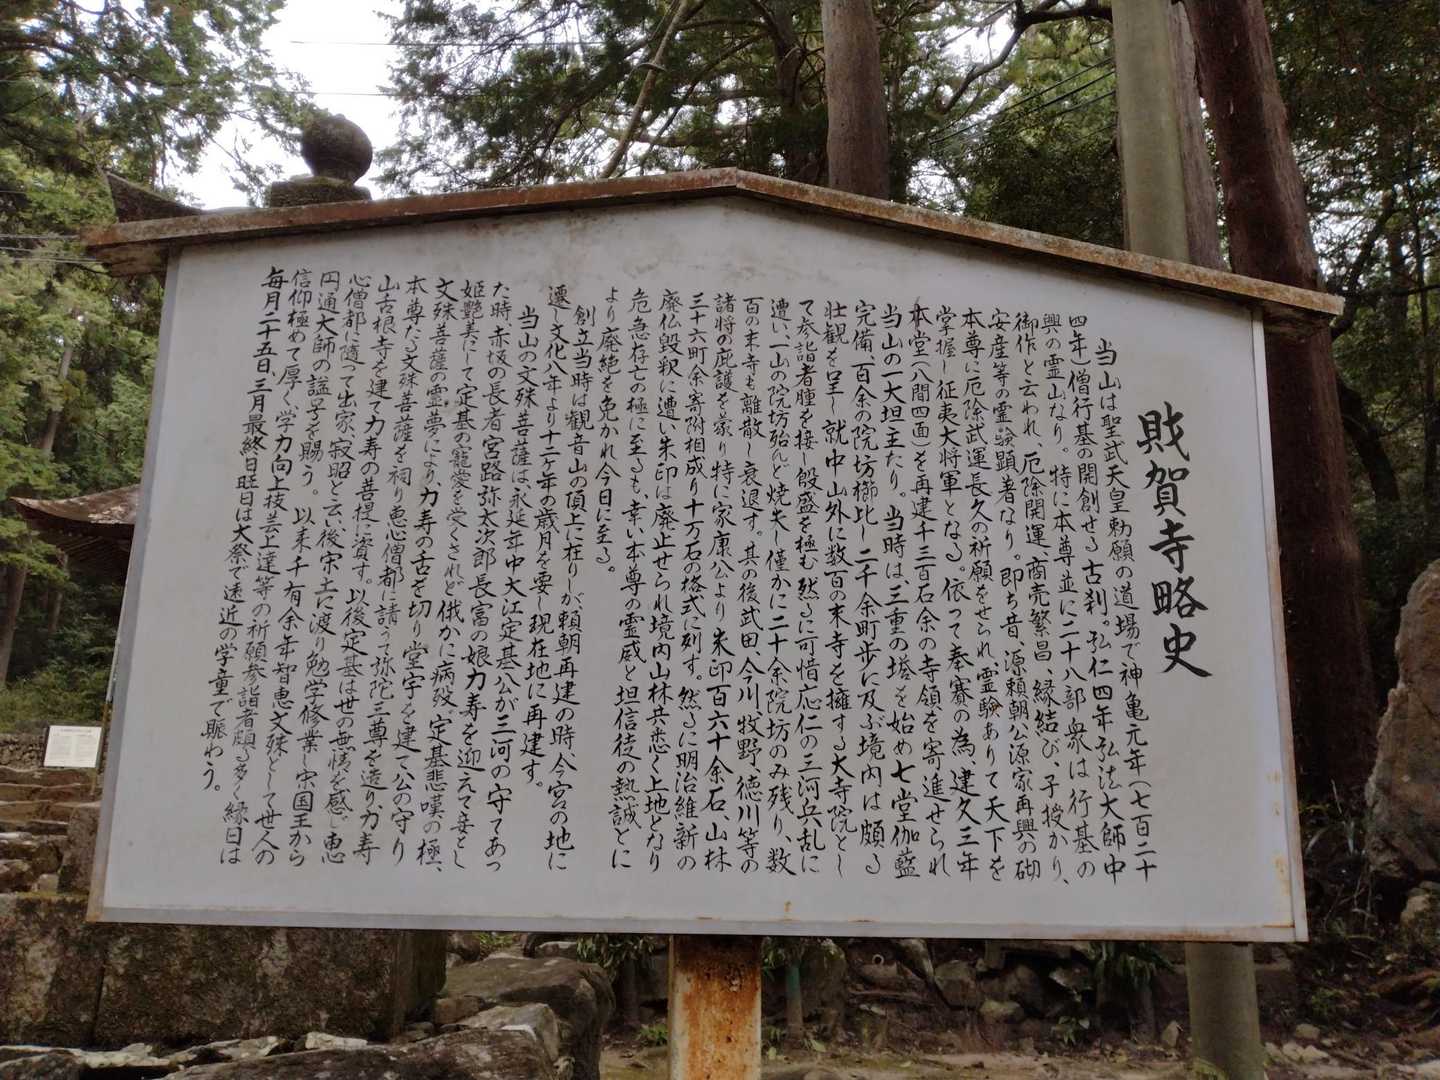 財賀寺略史
当山は聖武天皇勅願の道場で神亀元年(七百二十
四年)僧行基の開創せる古刹。弘仁四年弘法大師中
興の霊山なり。特に本尊並に二十八部衆は行基の
御作と云われ、厄除開運、商売繁昌、縁結び、子授かり、
安産等の霊験顕著なり。即ち昔、源頼朝公源家再興の砌
本尊に厄除武運長久の祈願をせられ、霊験ありて天下を
掌握し征夷大将軍となる。依って奉賽の為、建久三年
本堂(八間四面)を再建千三百石余の寺領を寄進せられ
当山の一大坦主たり。当時は、三重の塔を始め七堂伽藍
完備、百余の院坊櫛比し二千余町歩に及ぶ境内は頗る
壮観を呈し就中山外に数百の末寺を擁する大寺院とし
て参詣者踵を接し殷盛を極む然るに可惜応仁の三河兵乱に
遭い、一山の院坊殆んど焼失し僅かに二十余院坊のみ残り、数
百の末寺も離散し衰退す。其の後武田、今川、牧野、徳川等の
諸将の庇護を蒙り特に家康公より朱印百六十余石、山林
三十六町余寄附相成り十万石の格式に列す。然るに明治維新の
廃仏毀釈に遭い朱印は廃止せられ境内山林共悉く上地となり
危急存亡の極に至るも、幸い本尊の霊威と坦信徒の熱誠とに
より廃絶を免かれ今日に至る。
創立当時は観音山の頂上に在りしが頼朝再建の時、今宮の地に
遷し文化八年より十二ヶ年の歳月を要し現在地に再建す。
当山の文殊菩薩は、永延年中大江定基公が三河の守であっ
た時、赤坂の長者宮路弥太次郎長富の娘力寿を迎えて妾とし
姫艶美にして定基の寵愛を受くされど俄かに病殁、定基悲嘆の極、
文殊菩薩の霊夢により、力寿の舌を切り堂宇を建て公の守り
本尊たる文殊菩薩を祠り恵心僧都に請うて弥陀三尊を造り、力寿
山舌根寺を建て力寿の菩提に資す。以後定基は世の無情を感じ恵
心僧都に随って出家、寂昭と云い、後宋土に渡り勉学修業し宋国王から
円通大師の諡号を賜う。以来千有余年智恵文殊として世人の
信仰極めて厚く、学力向上技芸上達等の祈願参詣者頗る多く縁日は
毎月二十五日、三月最終日旺日は大祭で遠近の学童で賑わう。